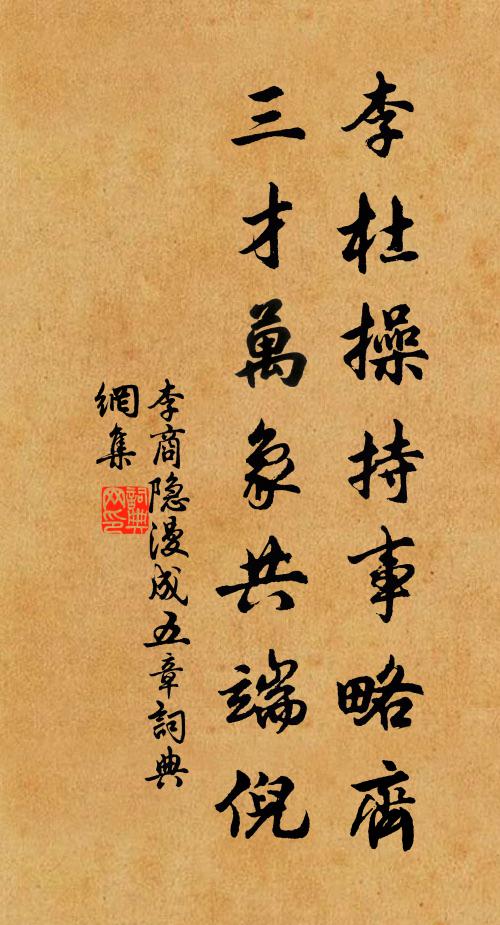 李杜操持事略齊
三才萬象共端倪
李商隐漫成五章詞典
網集
詞典網印